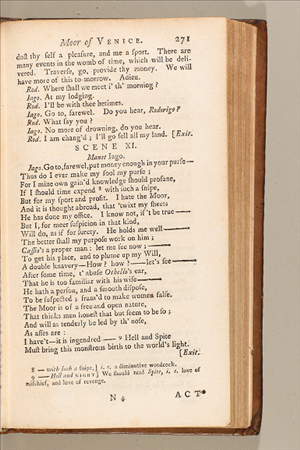 Moor of VENICE. 271
dost thy self a pleasure, and me a sport. There are
many events in the womb of time, which will be deli-
vered. Traverse, go, provide thy money. We will
have more of this to-morrow. Adieu.
Rod. Where shall we meet i' th' morning?
Iago. At my lodging.
Rod. I'll be with thee betimes.
Iago. Go to, farewel. Do you hear, Rodorigo?
Rod. What say you?
Iago. No more of drowning, do you hear.
Rod. I am chang'd; I'll go sell all my land. [Exit.
SCENE XI.
Manet Iago.
Iago. Go to, farewel, put money enough in your purse—
Thus do I ever make my fool my purse;
For I mine own gain'd knowledge should profane,
If I should time expend 8 with such a snipe,
But for my sport and profit. I hate the Moor,
And it is thought abroad, that 'twixt my sheets
He has done my office. I know not, if't be true—
But I, for meer suspicion in that kind,
Will do, as if for surety. He holds me well—
The better shall my purpose work on him;
Cassio's a proper man: let me see now;—
To get his place, and to plume up my Will,
A double knavery—How? how?—let's see—
After some time, t' abuse Othello's ear,
That he is too familiar with his wife—
He hath a person, and a smooth dispose,
To be suspected; fram'd to make women false.
The Moor is of a free and open nature,
That thinks men honest that but seem to be so;
And will as tenderly be led by th' nose,
As asses are:
I have't—it is ingendred—9 Hell and Spite
Must bring this monstrous birth to the world's light.
[Exit.
8 — with such a snipe,] i. e. a diminutive woodcock.
9 — Hell and NIGHT] We should read Spite, i. e. love of
mischief, and love of revenge.
N 4 ACT